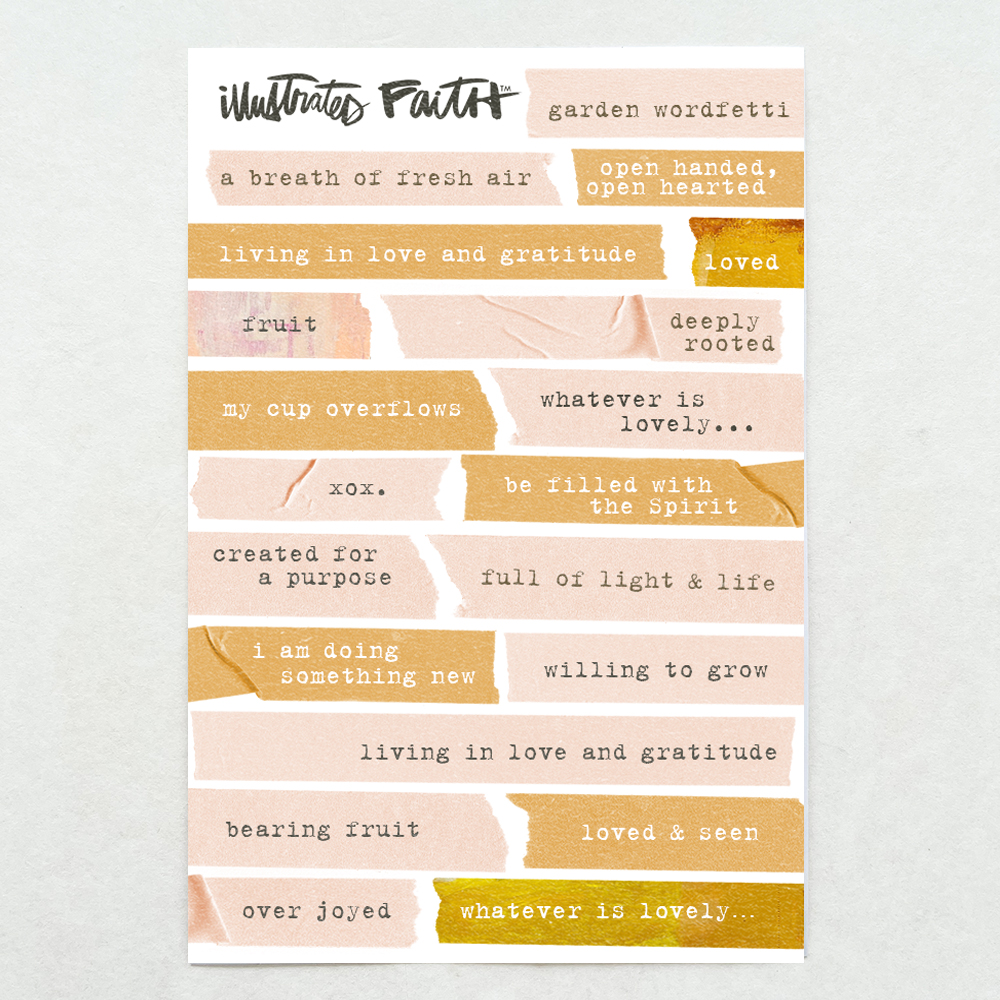 illustrated FAITH™
garden wordfetti
a breath of fresh air
open handed,
open hearted
living in love and gratitude
loved
fruit
deeply
rooted
my cup overflows
whatever is
lovely...
xox.
be filled with
the Spirit
created for
a purpose
full of light & life
i am doing
something new
willing to grow
living in love and gratitude
bearing fruit
loved & seen
over joyed
whatever is lovely...